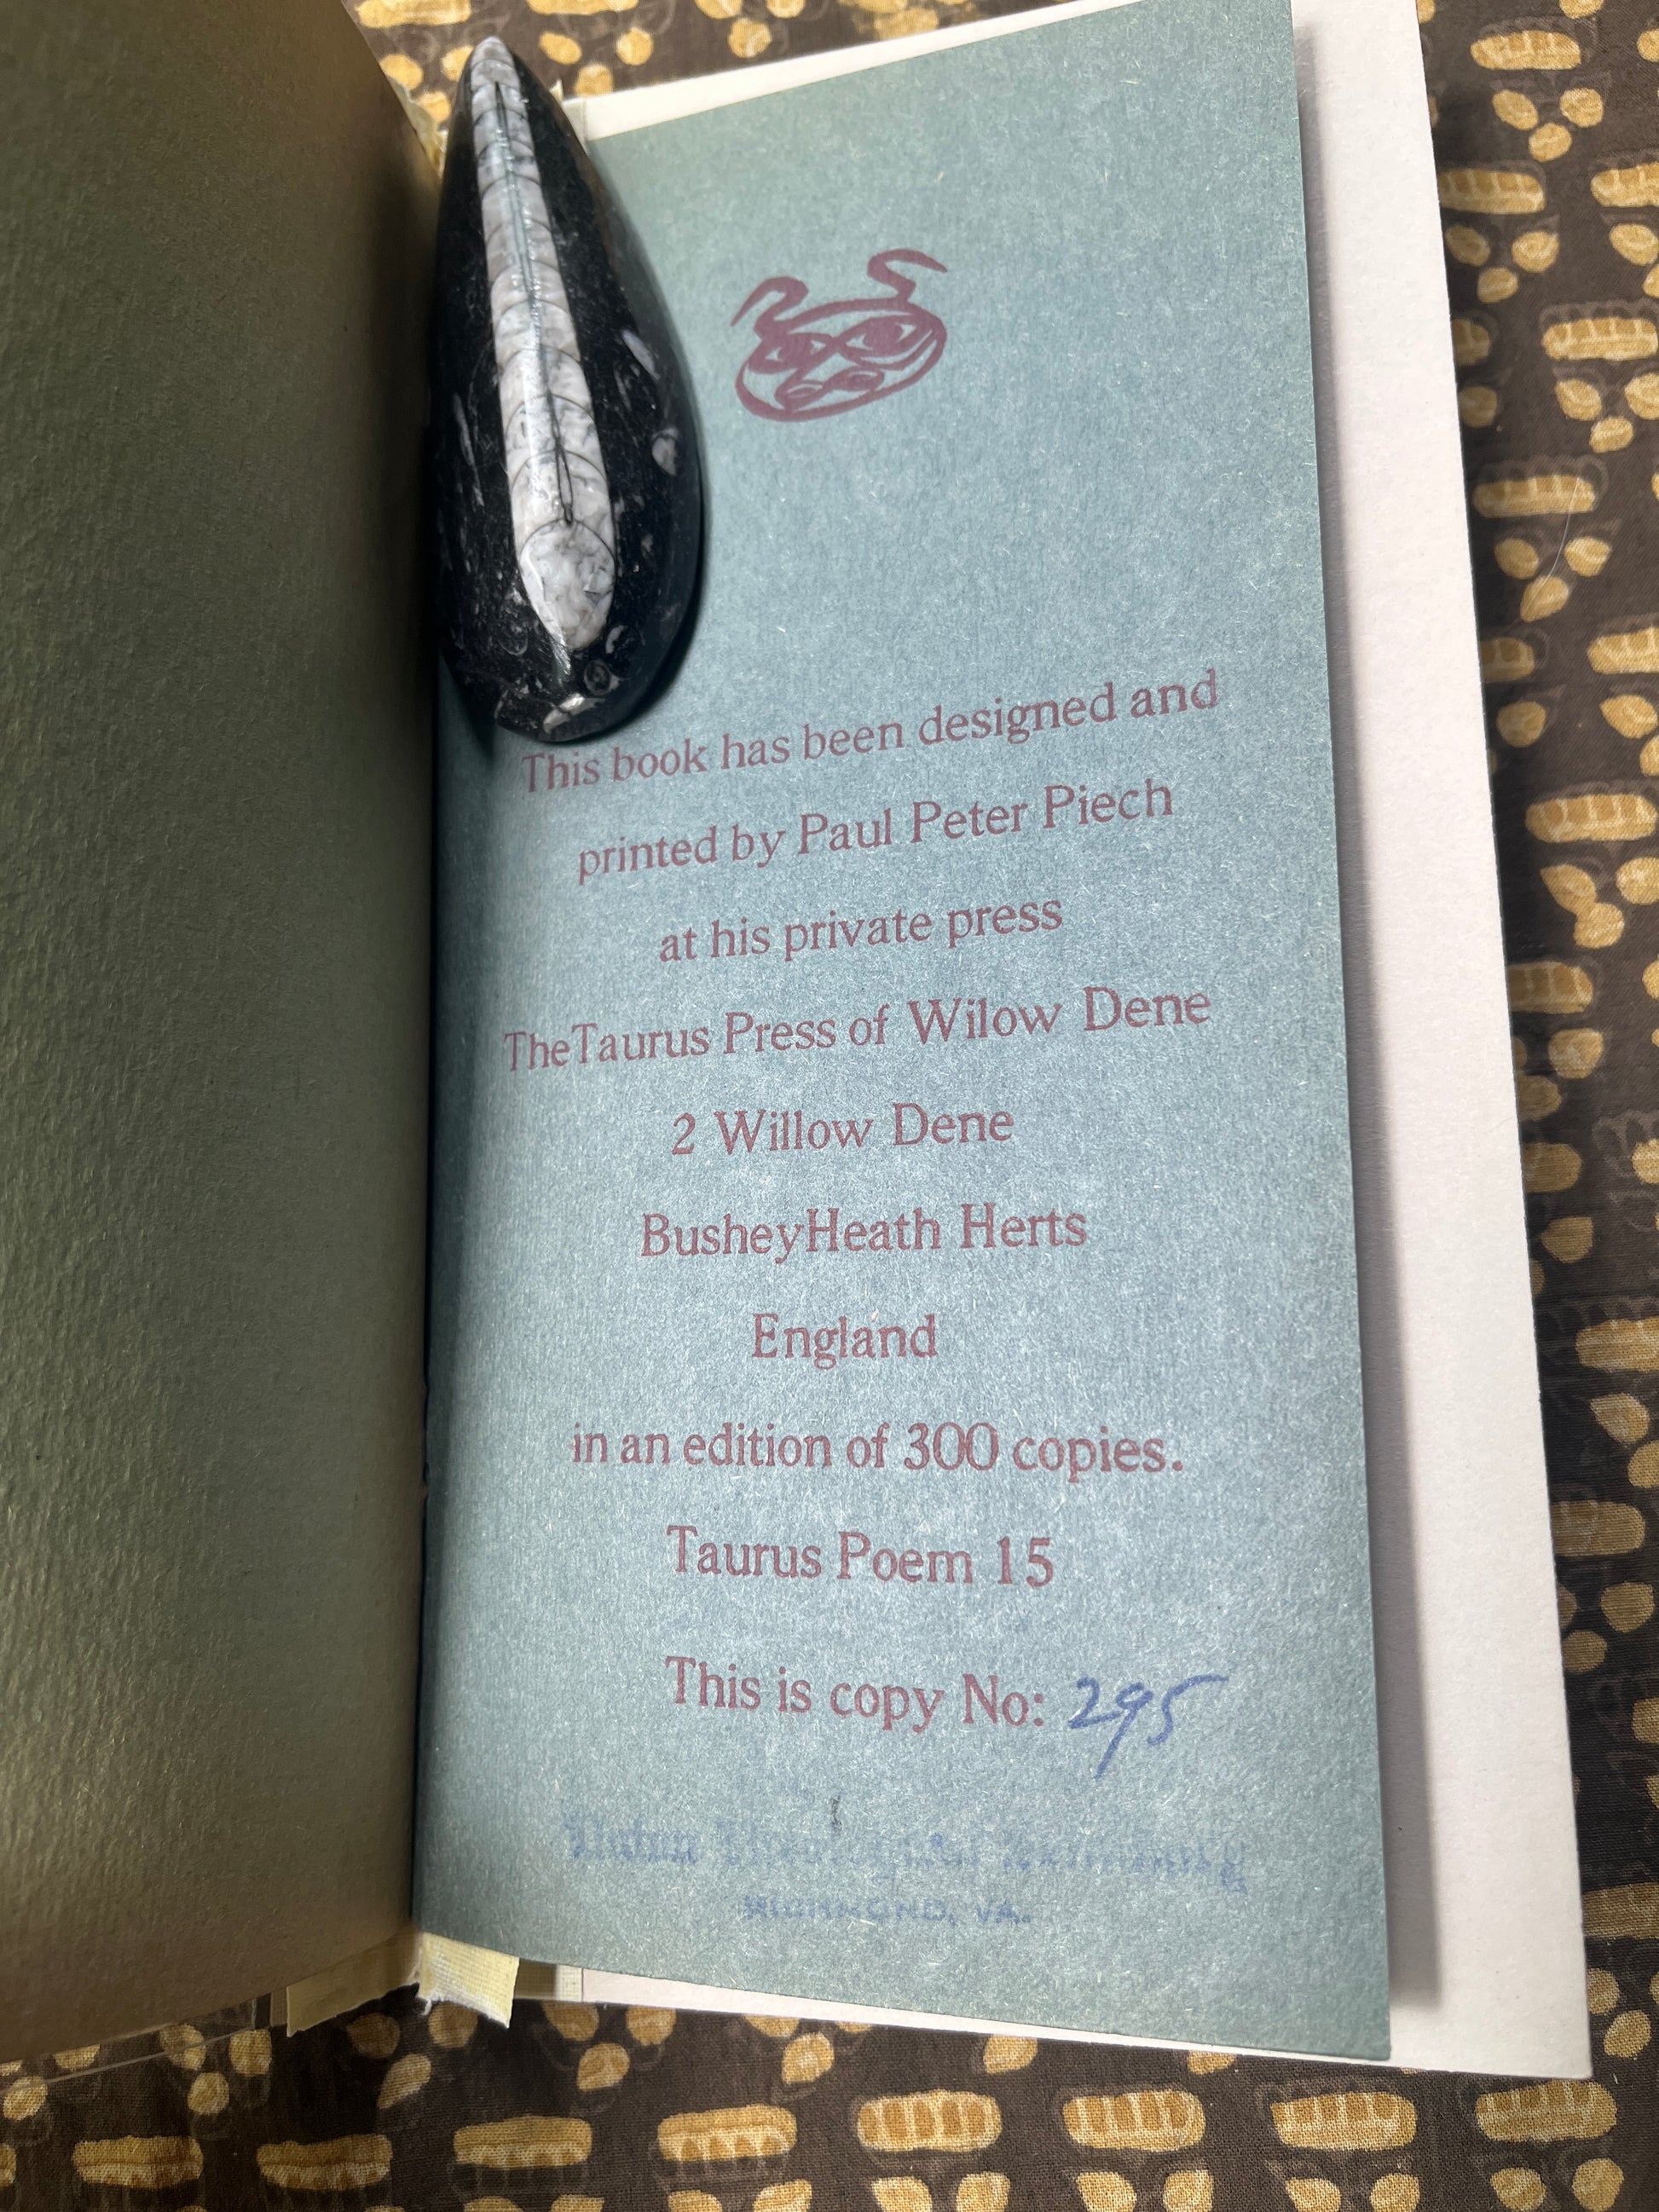 This book has been designed and
printed by Paul Peter Piech
at his private press
TheTaurus Press of Wilow Dene
2 Willow Dene
BusheyHeath Herts
England
in an edition of 300 copies.
Taurus Poem 15
This is copy No: 295
Union Theological Seminary
RICHMOND, VA.